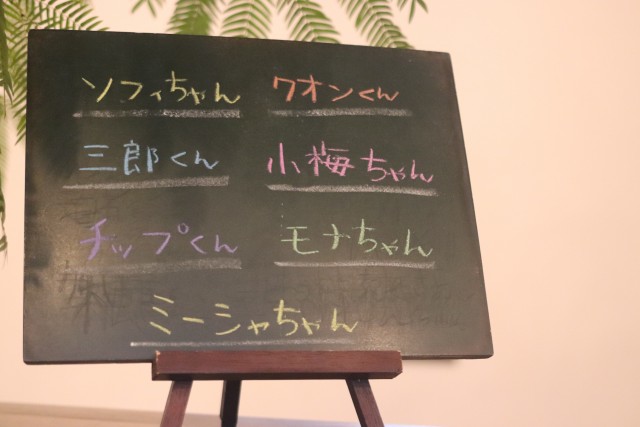 ソフィちゃん クオンくん
三郎くん 小梅ちゃん
チップくん モナちゃん
ミーシャちゃん